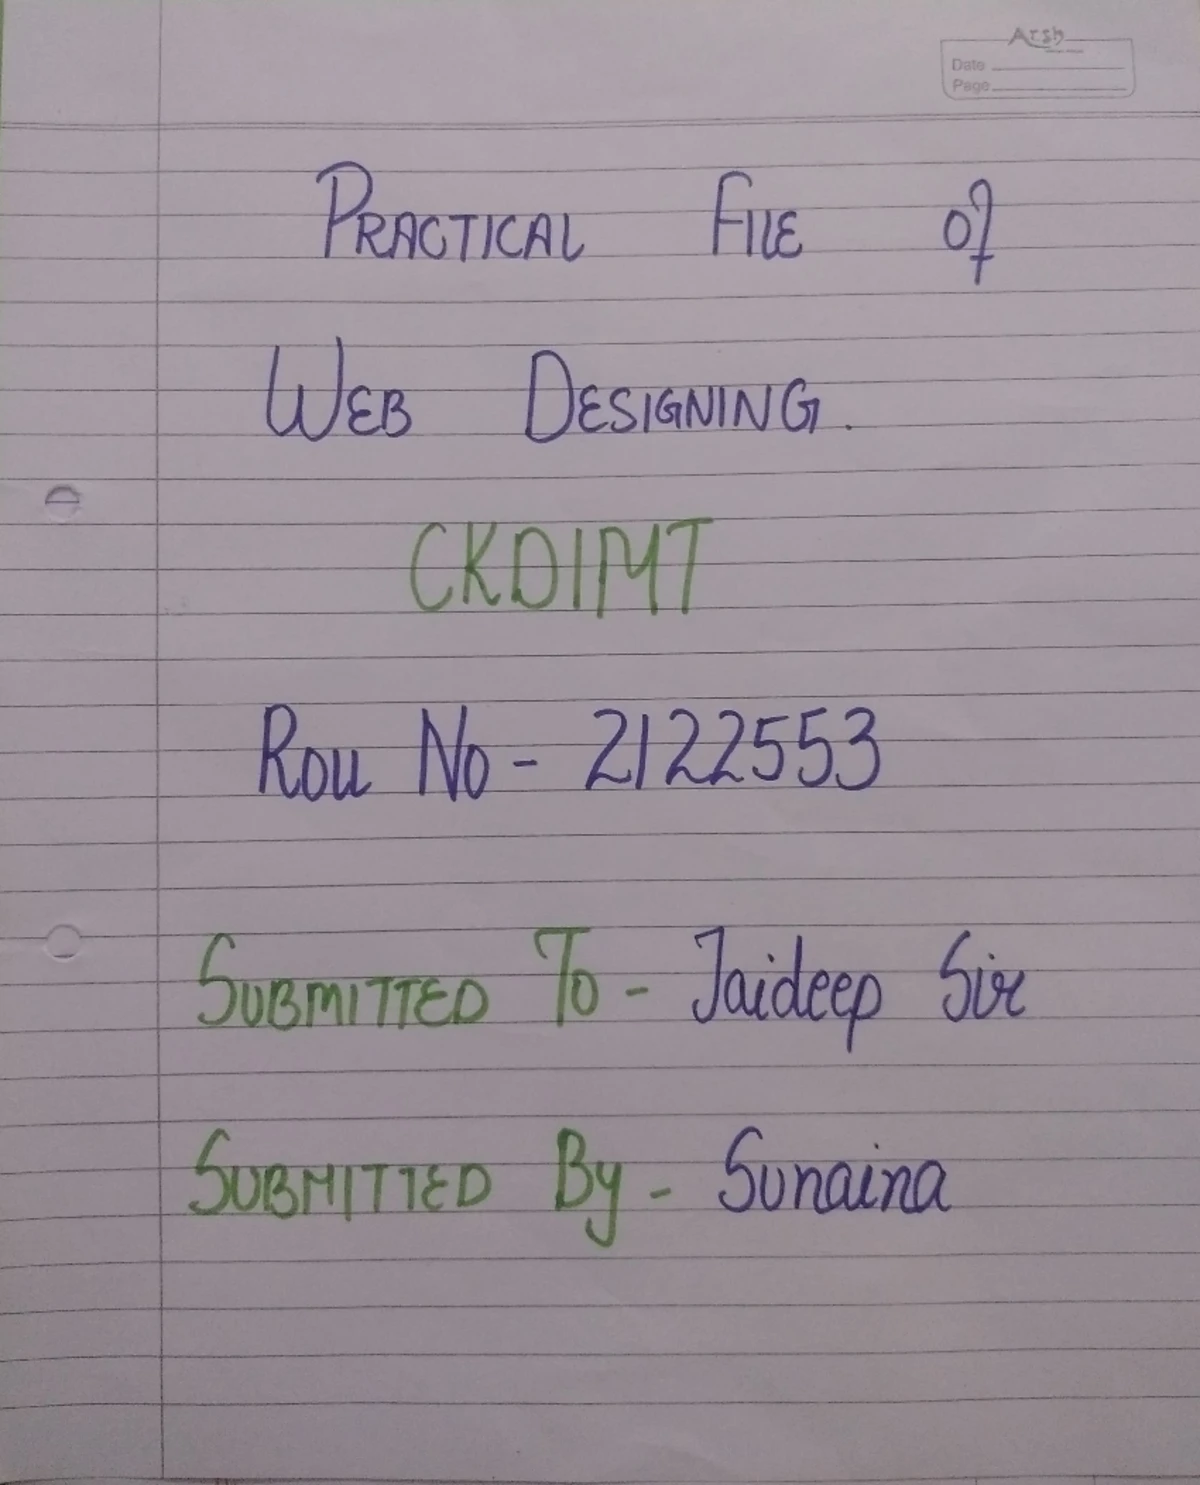 Arsh
Date
Page
PRACTICAL FILE of
WEB DESIGNING.
CKDIMT
Roll No - 2122553
SUBMITTED To - Jaideep Sir
SUBMITTED By - Sunaina